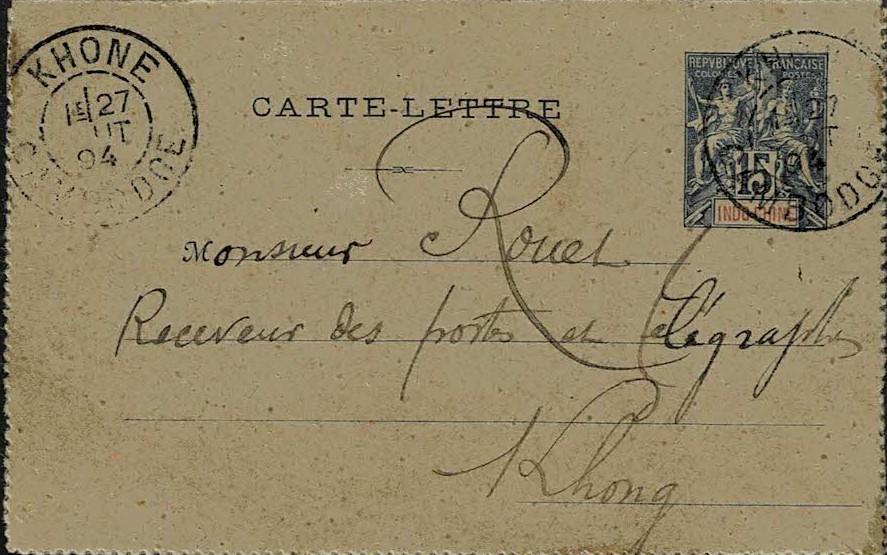 KHONE
1E
27
UT
94
CAMBODGE
CARTE-LETTRE
REPVBLIQVE FRANÇAISE
COLONIES POSTES
15
INDO-CHINE
27
94
CAMBODGE
Monsieur Rouet
Receveur des postes et télégraphes
Khong